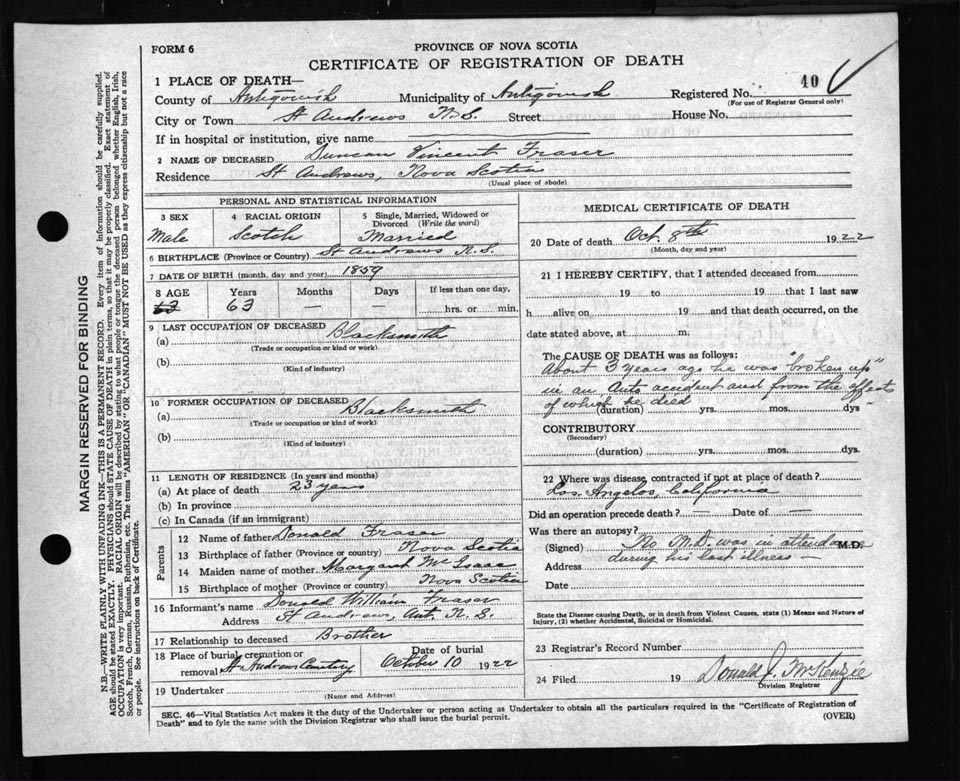 FORM 6
PROVINCE OF NOVA SCOTIA
CERTIFICATE OF REGISTRATION OF DEATH
1 PLACE OF DEATH—
County of Antigonish Municipality of Antigonish Registered No. 40
(For use of Registrar General only)
City or Town St Andrews N.S. Street House No.
If in hospital or institution, give name
2 NAME OF DECEASED Duncan Vincent Fraser
Residence St Andrews, Nova Scotia
(Usual place of abode)
PERSONAL AND STATISTICAL INFORMATION
3 SEX 4 RACIAL ORIGIN 5 Single, Married, Widowed or Divorced (Write the word)
Male Scotch Married
6 BIRTHPLACE (Province or Country) St Andrews N.S.
7 DATE OF BIRTH (month, day and year) 1859
8 AGE Years Months Days If less than one day,
63 63 — — hrs. or min.
9 LAST OCCUPATION OF DECEASED
(a) Blacksmith
(Trade or occupation or kind or work)
(b)
(Kind of industry)
10 FORMER OCCUPATION OF DECEASED
(a) Blacksmith
(Trade or occupation or kind or work)
(b)
(Kind of industry)
11 LENGTH OF RESIDENCE (In years and months)
(a) At place of death 23 years
(b) In province
(c) In Canada (if an immigrant)
Parents
12 Name of father Donald Fraser
13 Birthplace of father (Province or country) Nova Scotia
14 Maiden name of mother Margaret McIsaac
15 Birthplace of mother (Province or country) Nova Scotia
16 Informant's name Donald William Fraser
Address St Andrews, Ant. N.S.
17 Relationship to deceased Brother
18 Place of burial, cremation or removal St Andrews Cemetery Date of burial October 10 1922
19 Undertaker
(Name and Address)
MEDICAL CERTIFICATE OF DEATH
20 Date of death Oct. 8th 1922
(Month, day and year)
21 I HEREBY CERTIFY, that I attended deceased from
19 to 19 that I last saw
h alive on 19 and that death occurred, on the
date stated above, at m.
The CAUSE OF DEATH was as follows:
About 3 years ago he was "broken up"
in an Auto accident and from the effects
of which he died
(duration) yrs. mos. dys
CONTRIBUTORY
(Secondary)
(duration) yrs. mos. dys.
22 Where was disease contracted if not at place of death?
Los Angelos, California
Did an operation precede death? — Date of —
Was there an autopsy?
(Signed) No M.D. was in attendance M.D.
during his last illness -
Address
Date
State the Disease causing Death, or in death from Violent Causes, state (1) Means and Nature of
Injury, (2) whether Accidental, Suicidal or Homicidal.
23 Registrar's Record Number
24 Filed 19 Donald J. McKenzie
Division Registrar
SEC. 46—Vital Statistics Act makes it the duty of the Undertaker or person acting as Undertaker to obtain all the particulars required in the "Certificate of Registration of
Death" and to fyle the same with the Division Registrar who shall issue the burial permit.
(OVER)
MARGIN RESERVED FOR BINDING
N.B.—WRITE PLAINLY WITH UNFADING INK—THIS IS A PERMANENT RECORD. Every item of information should be carefully supplied.
AGE should be stated EXACTLY. PHYSICIANS should STATE CAUSE OF DEATH in plain terms, so that it may be properly classified. Exact statement of
OCCUPATION is very important. RACIAL ORIGIN will be described by stating to what people or tongue the deceased person belonged whether English, Irish,
Scotch, French, German, Russian, Ruthenian, etc. The terms "AMERICAN" OR "CANADIAN" MUST NOT BE USED as they express citizenship but not a race
or people. See instructions on back of Certificate.